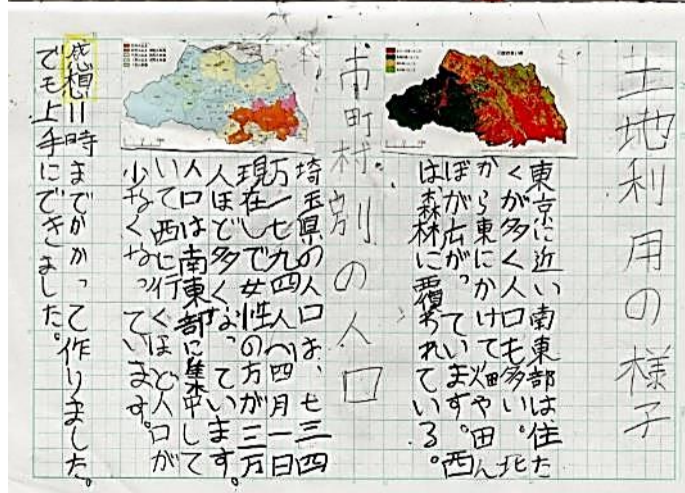 土地利用の様子
東京に近い南東部は住た
くが多く人口も多い。北
から東にかけて畑や田ん
ぼが広がっています。西
は、森林に覆われている。
市町村別の人口
埼玉県の人口は、七三四
万一七九四人(四月一日
現在)で女性の方が三万
人ほど多くなっています。
人口は南東部に集中して
いて西に行くほど人口が
少なくなっています。
感想11時までがかって作りました。
でも上手にできました。